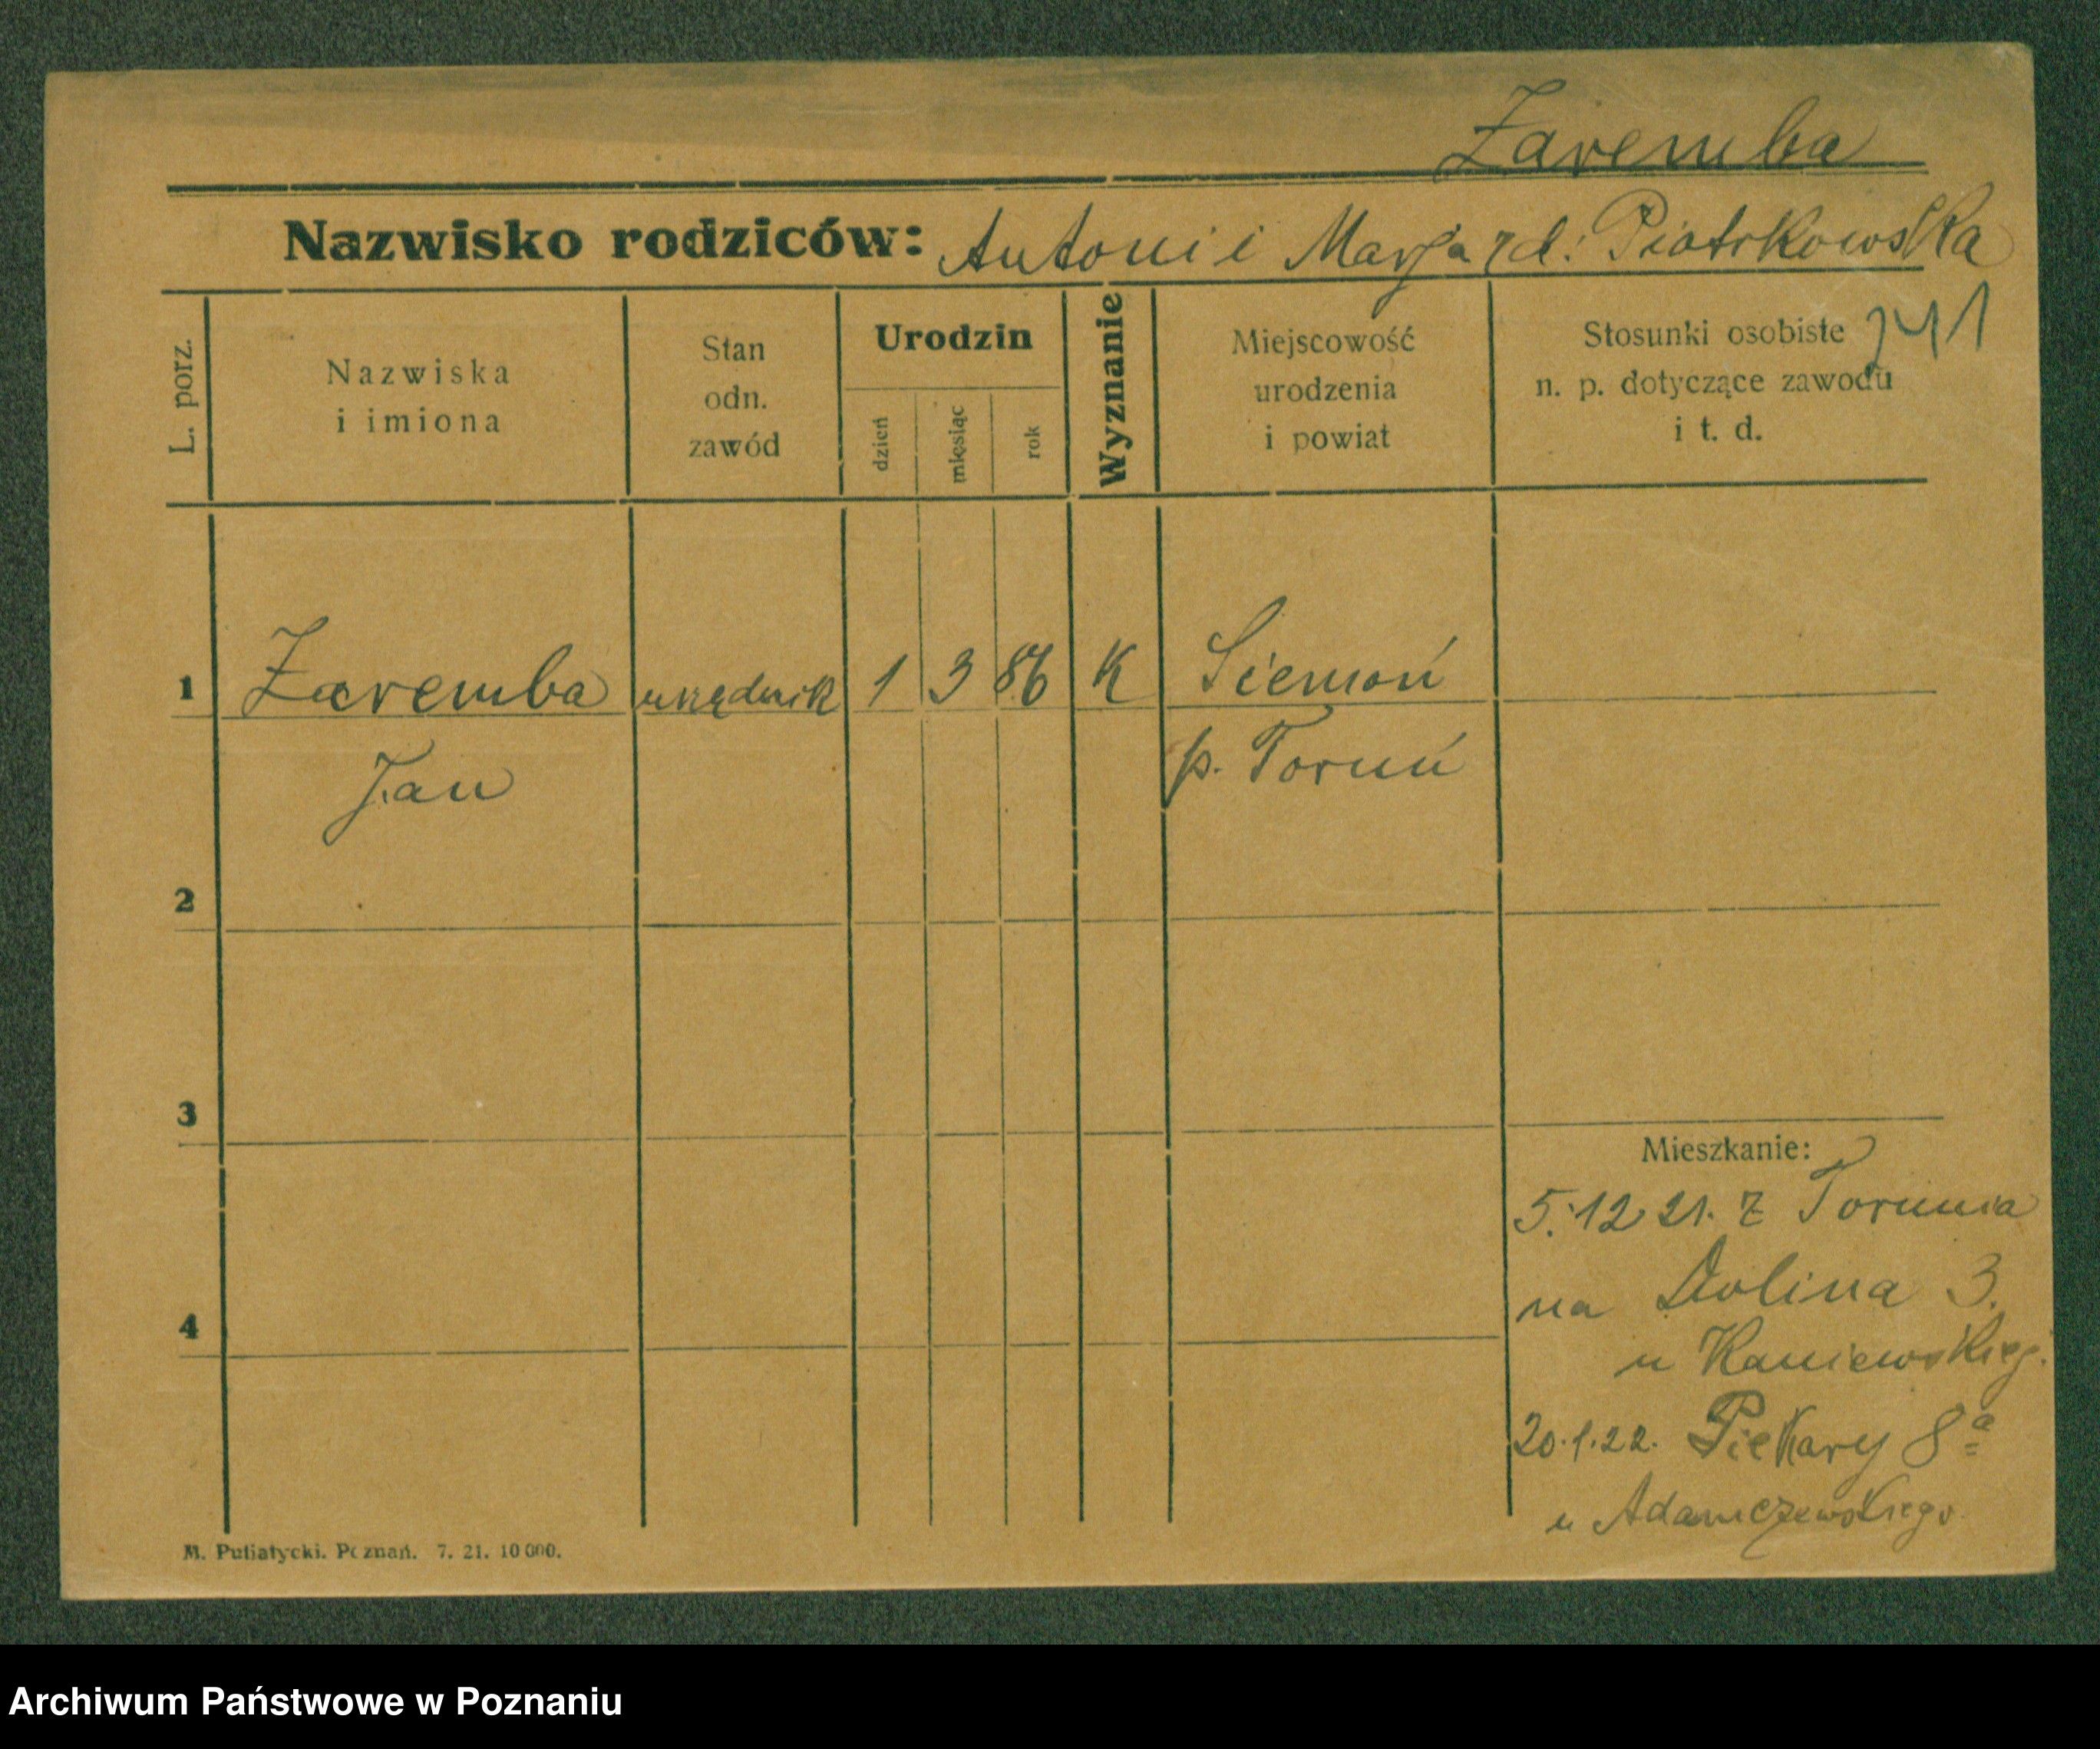 Zaremba
Nazwisko rodziców: Antoni i Marja rd: Piotrkowska
L. porz.
Nazwiska
i imiona
Stan
odn.
zawód
Urodzin
dzień
miesiąc
rok
Wyznanie
Miejscowość
urodzenia
i powiat
Stosunki osobiste
n. p. dotyczące zawodu
i t. d.
241
1 Zaremba urzędnik 1 3 86 K Siemoń
Jan p. Toruń
2
3
Mieszkanie:
5.12 21. z Torunia
na Dolina 3.
4
u Kaniewskieg.
20.1.22. Piekary 8a
u Adamczewskiego.
M. Putiatycki. Poznań. 7. 21. 10 000.
Archiwum Państwowe w Poznaniu